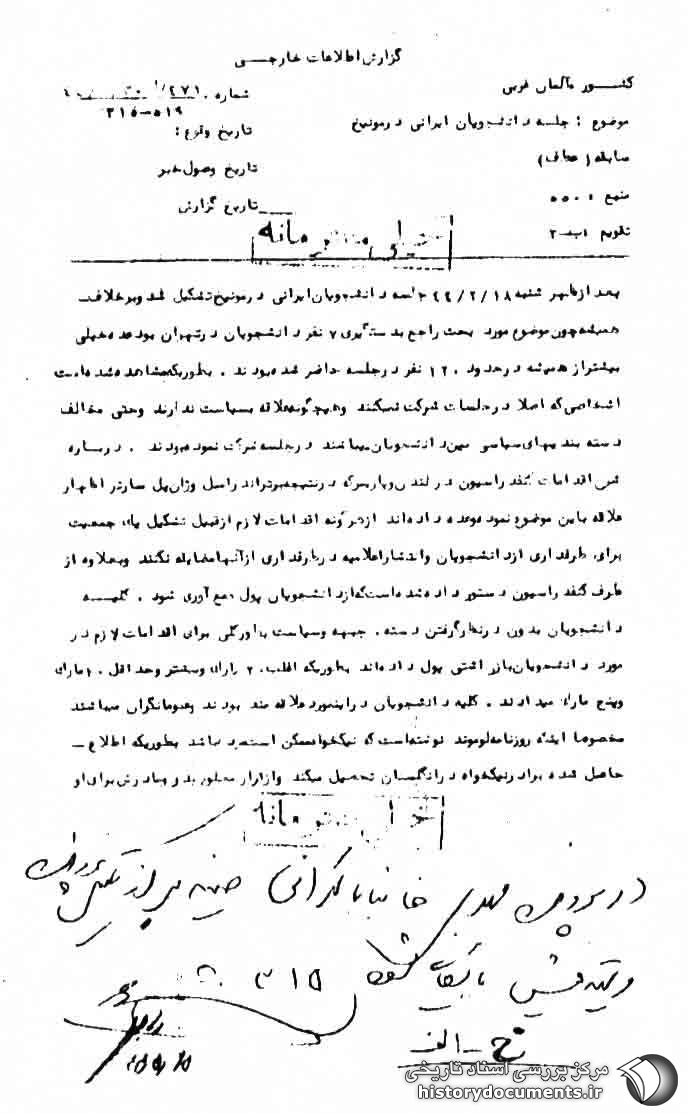 گزارش اطلاعات خارجـــی
کشـــور آلمان غربی
شماره
۳۱۵-۵۱۹
موضوع : جلسه دانشجویان ایرانی درمونیخ
تاریخ وقوع :
سابقه (عطف)
تاریخ وصول خبر
منبع : ۵۵۰
تاریخ گزارش
تقویم ب-۲
خیلی محرمانه
بعد ازظهر شنبه ۴۴/۲/۱۸ جلسه دانشجویان ایرانی درمونیخ تشکیل شد وبرخلاف
همیشه چون موضوع مورد بحث راجع بدستگیری ۷ نفر دانشجویان درتهران بود عده خیلی
بیشتر از همیشه درحدود ۱۲۰ نفر درجلسه حاضر شده بودند . بطوریکه مشاهده شده است
اشخاصی که اصلا درجلسات شرکت نمیکنند وهیچگونه علاقه بسیاست ندارند وحتی مخالف
دسته بندیهای سیاسی بین دانشجویان میباشند درجلسه شرکت نموده بودند . درباره
اقدامات کنفدراسیون درلندن وپاریس که درنتیجه برتراند راسل وژان پل سارتر اظهار
علاقه باین موضوع نموده وعده داده اند ازهرگونه اقدامات لازم ازقبیل تشکیل یک جمعیت
برای طرفداری ازدانشجویان وانتشار اعلامیه درطرفداری ازآنها مضایقه نکنند وبعلاوه از
طرف کنفدراسیون دستور داده شده است که ازدانشجویان پول جمع آوری شود . کلیـــه
دانشجویان بدون درنظرگرفتن دسته، جبهه وسیاست بطورکلی برای اقدامات لازم در
مورد دانشجویان بازداشتی پول داده اند بطوریکه اغلب ۲۰ مارک وبیشتر وحداقل ۱۰ مارک
وپنج مارک میدادند . کلیه دانشجویان دراینمورد علاقه مند بودند وعموما نگران میباشند
مخصوصا اینکه روزنامه لوموند نوشته است که نیکخواه ممکن است باشد بطوریکه اطلاع –
حاصل شده برادر نیکخواه درانگلستان تحصیل میکند وازقرار معلوم پدر ومادرش برای او
خیلی محرمانه
در پرونده مهدی خانبابا تهرانی ضمیمه
۳۱۵
ح - الف
مرکز بررسی اسناد تاریخی
historydocuments.ir